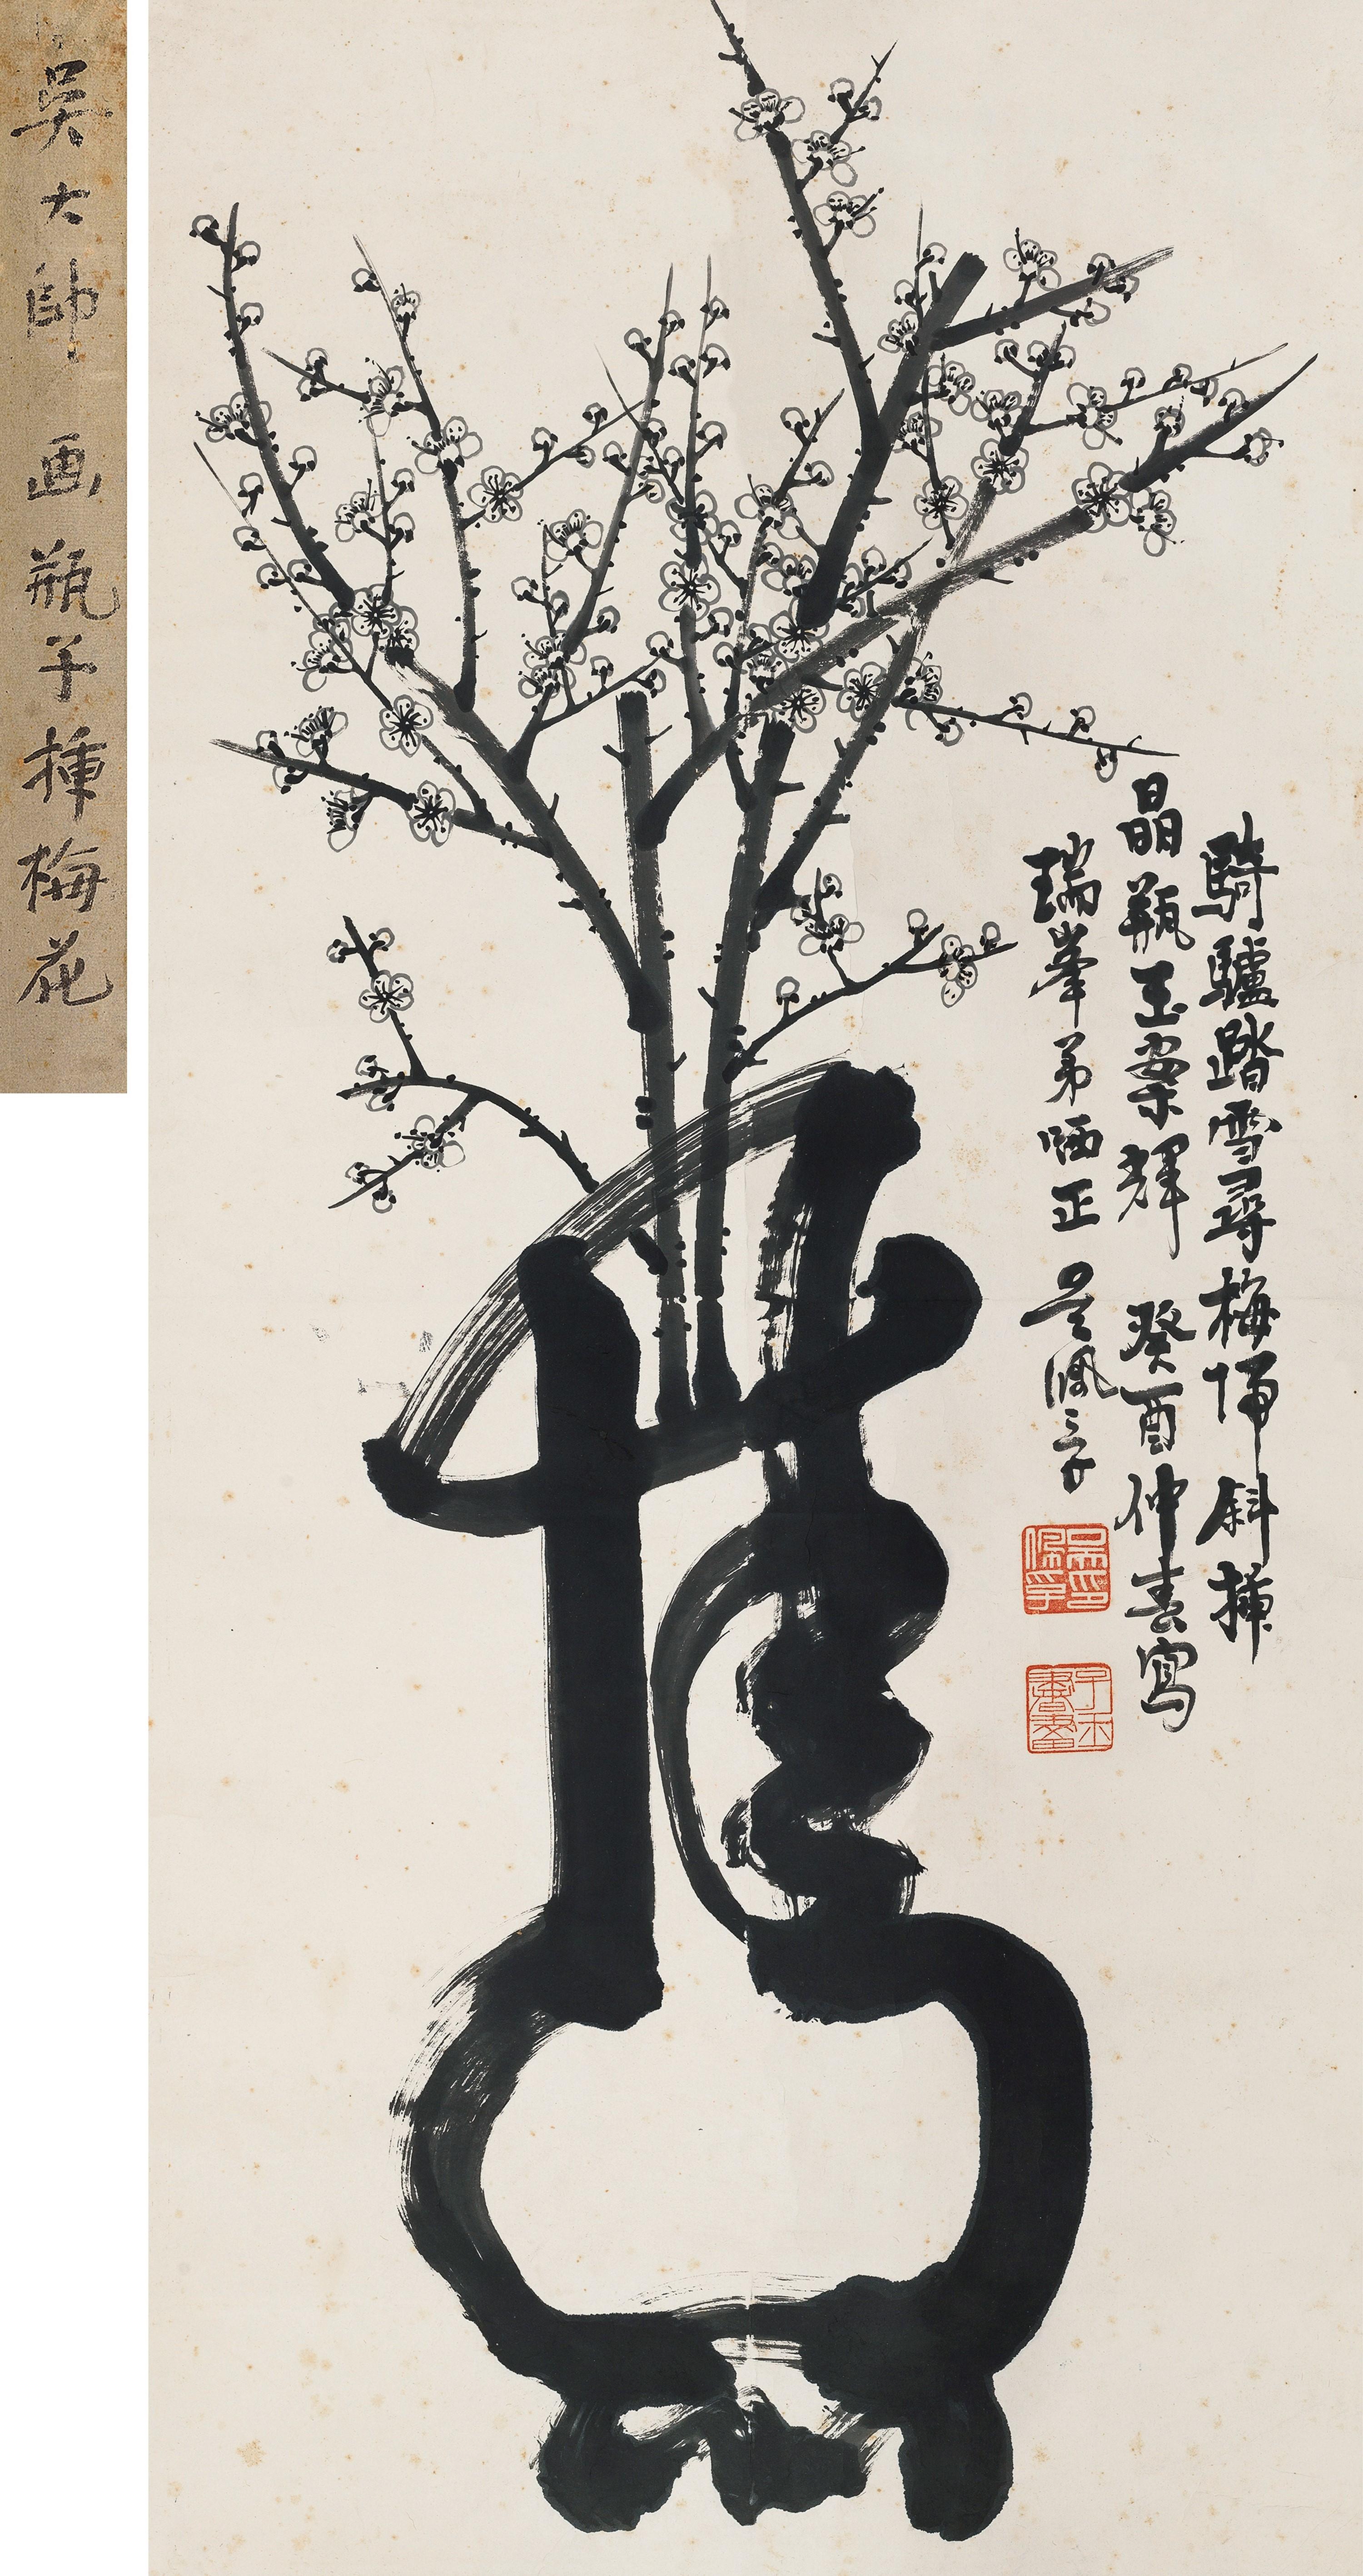 騎驢踏雪尋梅歸斜揷
晶瓶玉案輝 癸酉仲春寫
瑞峯弟哂正 吳佩孚
吳佩孚印
子玉書畫
吳大帥 画瓶子揷梅花